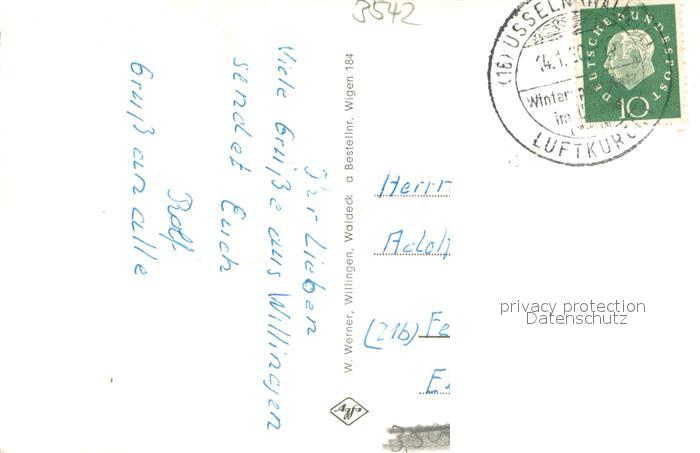 3542
Ihr Lieben
Viele Grüße aus Willingen
sendet Euch
Rolf
Gruß an alle
W. Werner, Willingen, Waldeck a Bestellnr. Wigen 184
Agfa
(16) USSELN (WALDECK)
14.1.
Winter
im
LUFTKURORT
DEUTSCHE BUNDESPOST
10
Herrn
Adolf
(21b) Fe
E
privacy protection
Datenschutz